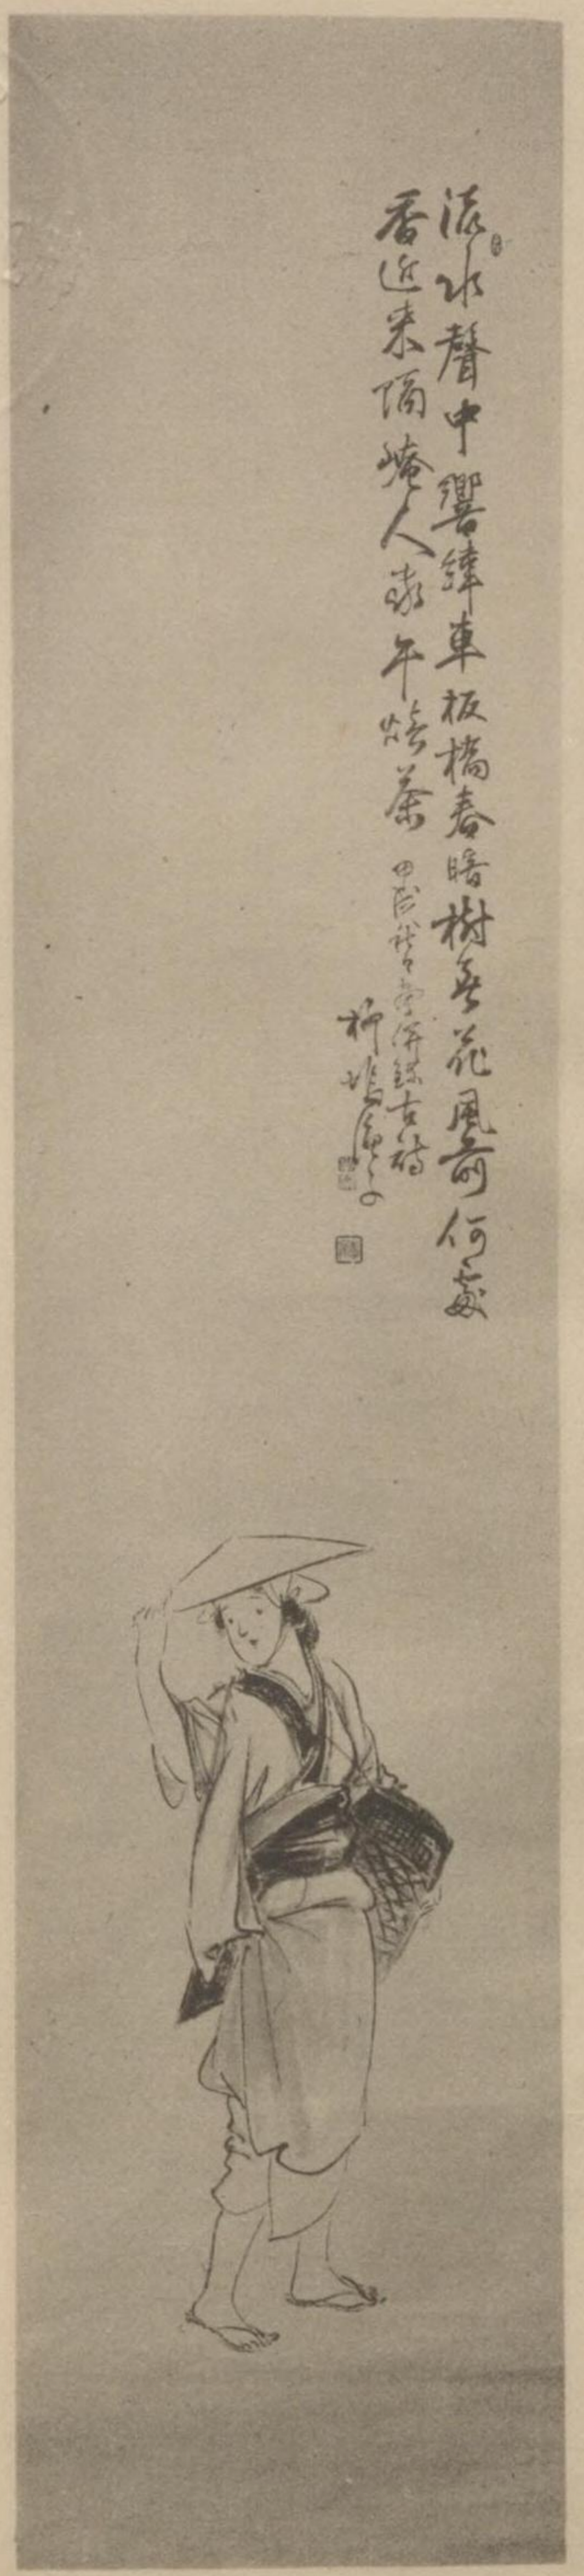 流水聲中響緯車板橋春暗樹無花風前何處
香近来隔崦人家午焙茶
併録古詩
柳塢